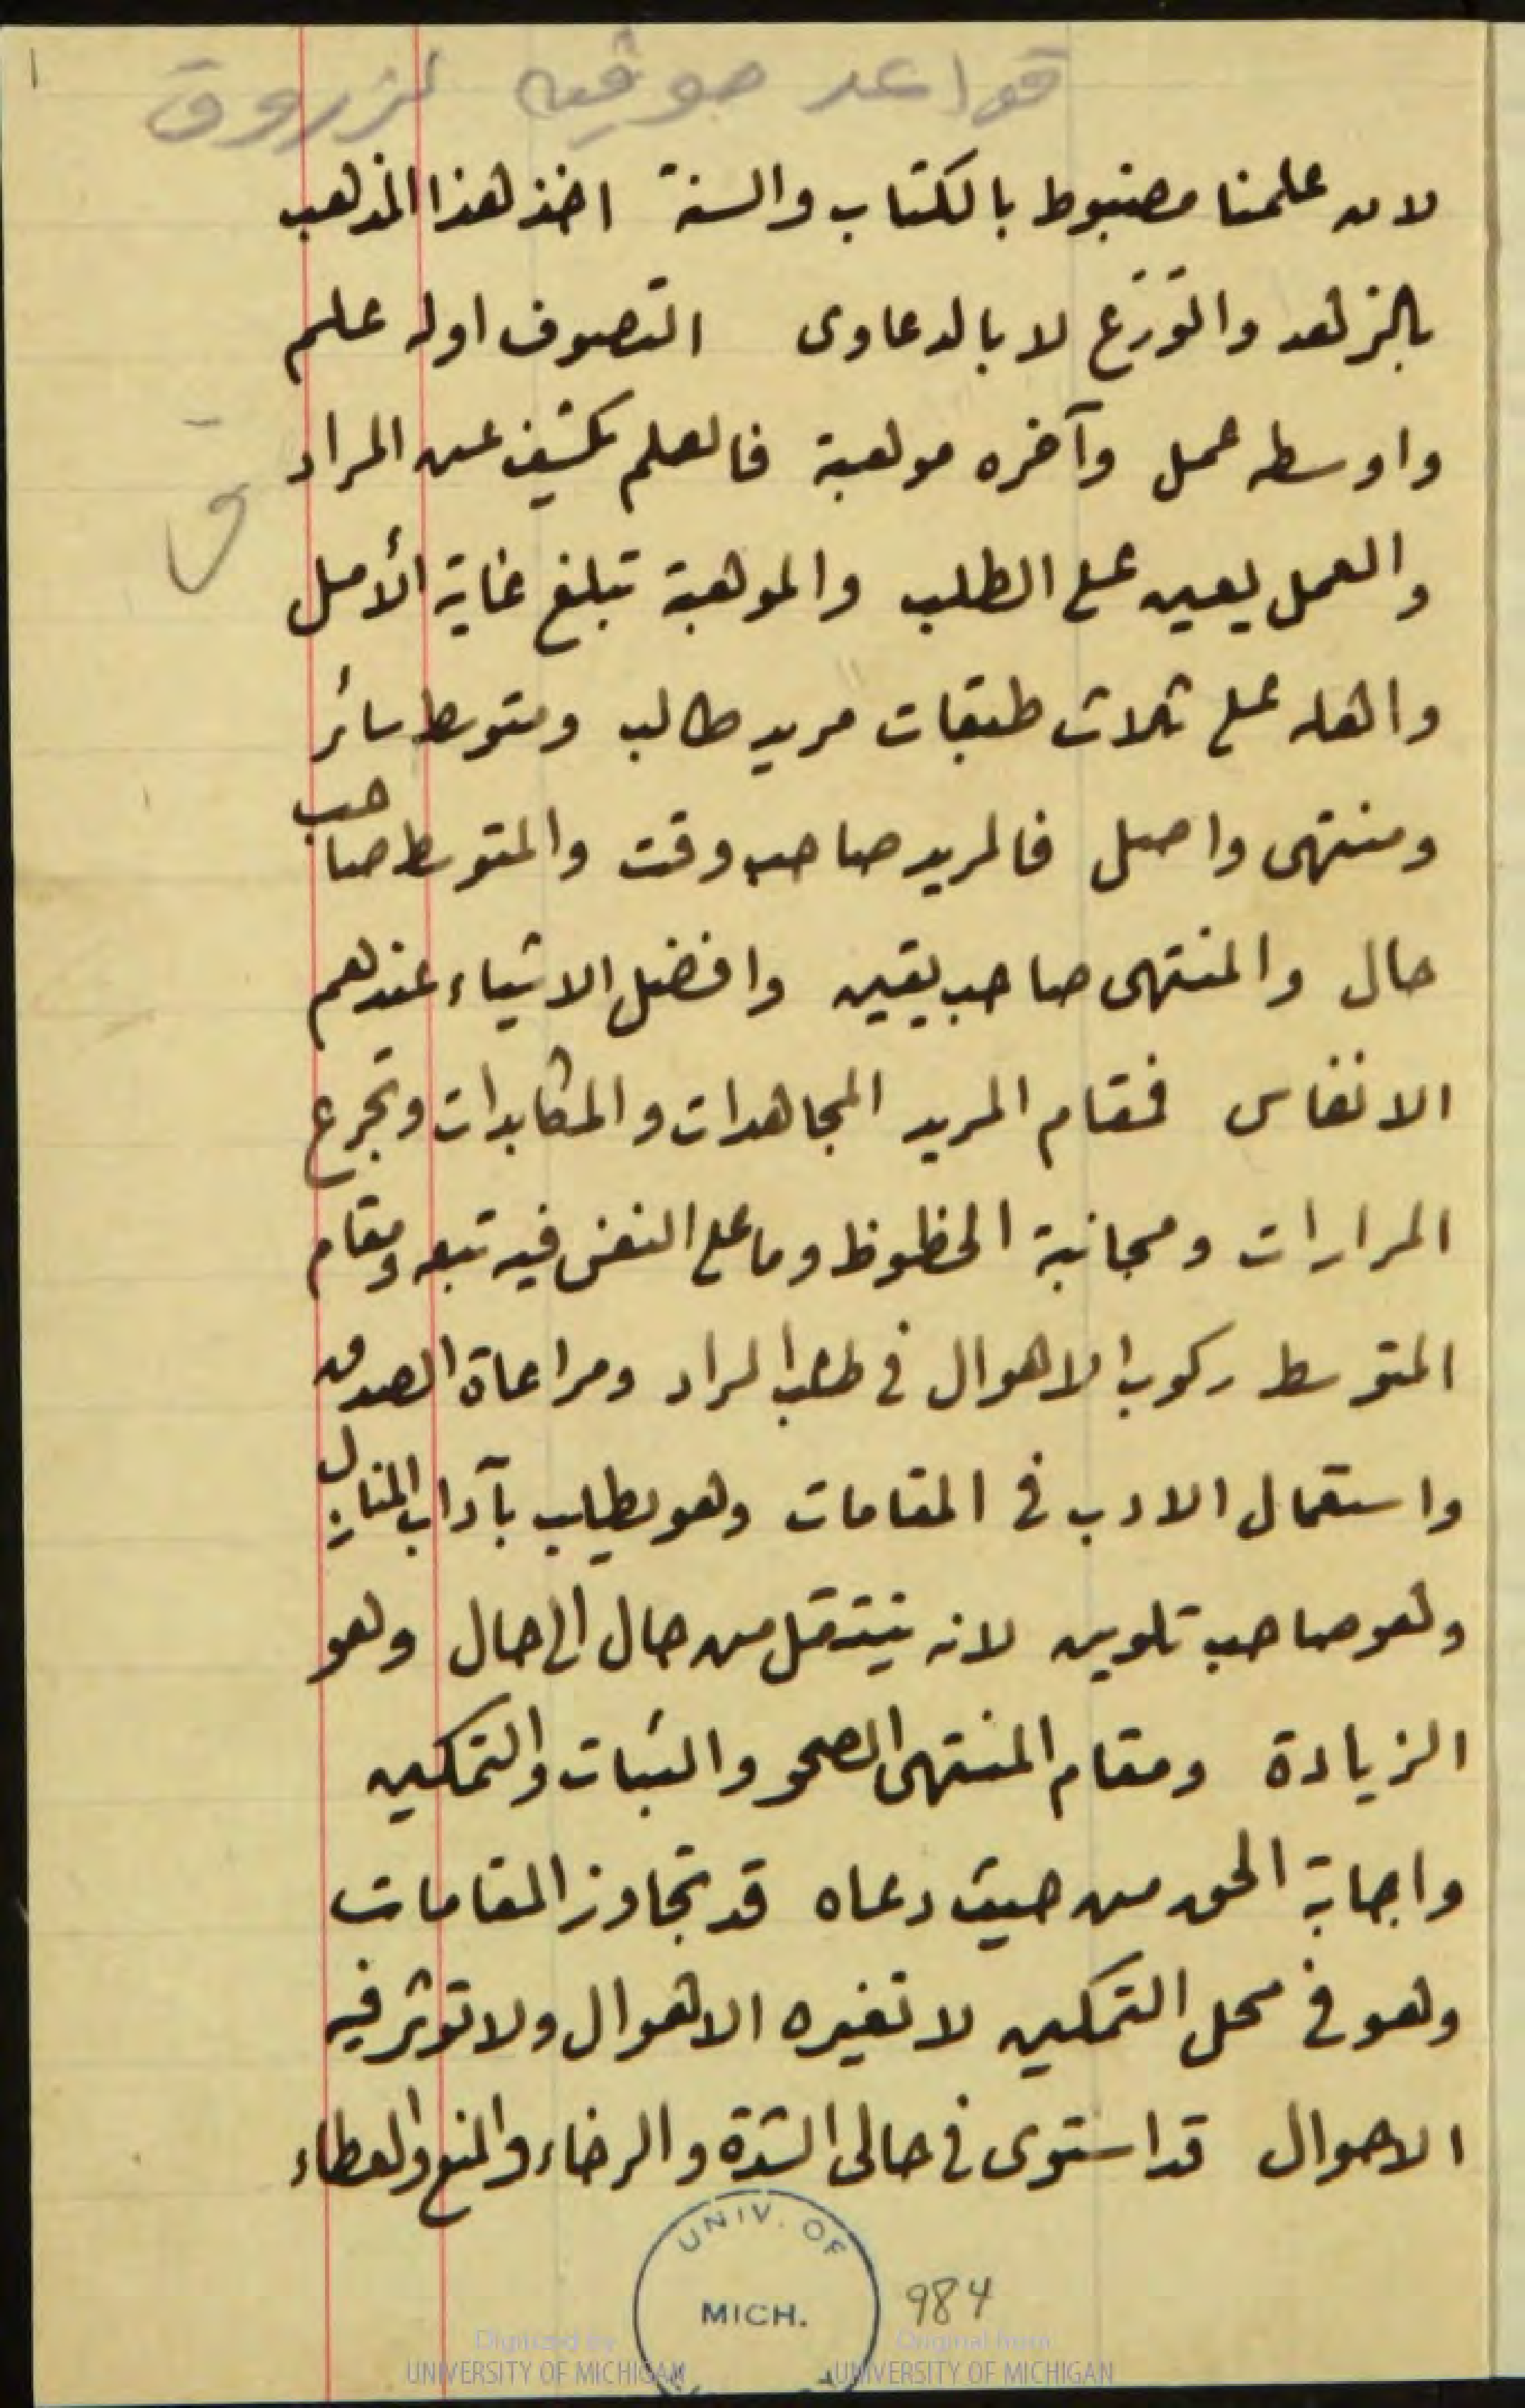 قواعد صوفيه لزروق
لان علمنا مضبوط بالكتاب والسنة اخذ هذا المذهب
بالزهد والتورع لا بالدعاوى التصوف اوله علم
واوسطه عمل وآخره موهبة فالعلم يكشف عن المراد
والعمل يعين على الطلب والموهبة تبلغ غاية الأمل
واهله على ثلاث طبقات مريد طالب ومتوسط سائر
ومنتهى واصل فالمريد صاحب وقت والمتوسط صاحب
حال والمنتهى صاحب يقين وافضل الاشياء عندهم
الانفاس فمقام المريد المجاهدات والمكابدات وتجرع
المرارات ومجانبة الحظوظ وما على النفس فيه تبعه ومقام
المتوسط ركوب الاهوال في طلب المراد ومراعاة الصدق
واستعمال الادب في المقامات وهو يطلب بآداب المنازل
وهو صاحب تلوين لانه ينتقل من حال الى حال وهو
الزيادة ومقام المنتهى الصحو والثبات والتمكين
واجابة الحق من حيث دعاه قد تجاوز المقامات
وهو في محل التمكين لا تغيره الاهوال ولا توثر فيه
الاحوال قد استوى في حالى الشدة والرخاء والمنع والعطاء
UNIV. OF
MICH.
984
Digitized by
UNIVERSITY OF MICHIGAN
Original from
UNIVERSITY OF MICHIGAN